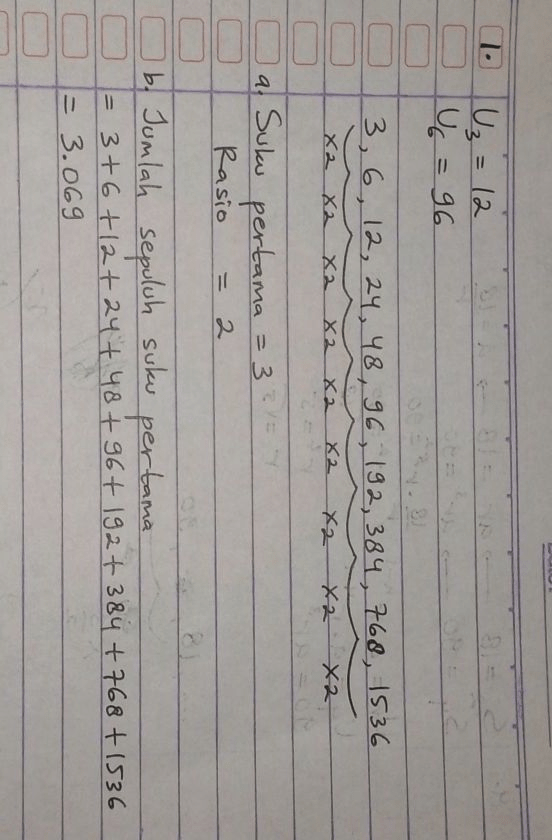 1. U3 = 12
U6 = 96
3, 6, 12, 24, 48, 96, 192, 384, 768, 1536
x2 x2 x2 x2 x2 x2 x2 x2 x2
a. Suku pertama = 3
Rasio = 2
b. Jumlah sepuluh suku pertama
= 3 + 6 + 12 + 24 + 48 + 96 + 192 + 384 + 768 + 1536
= 3.069